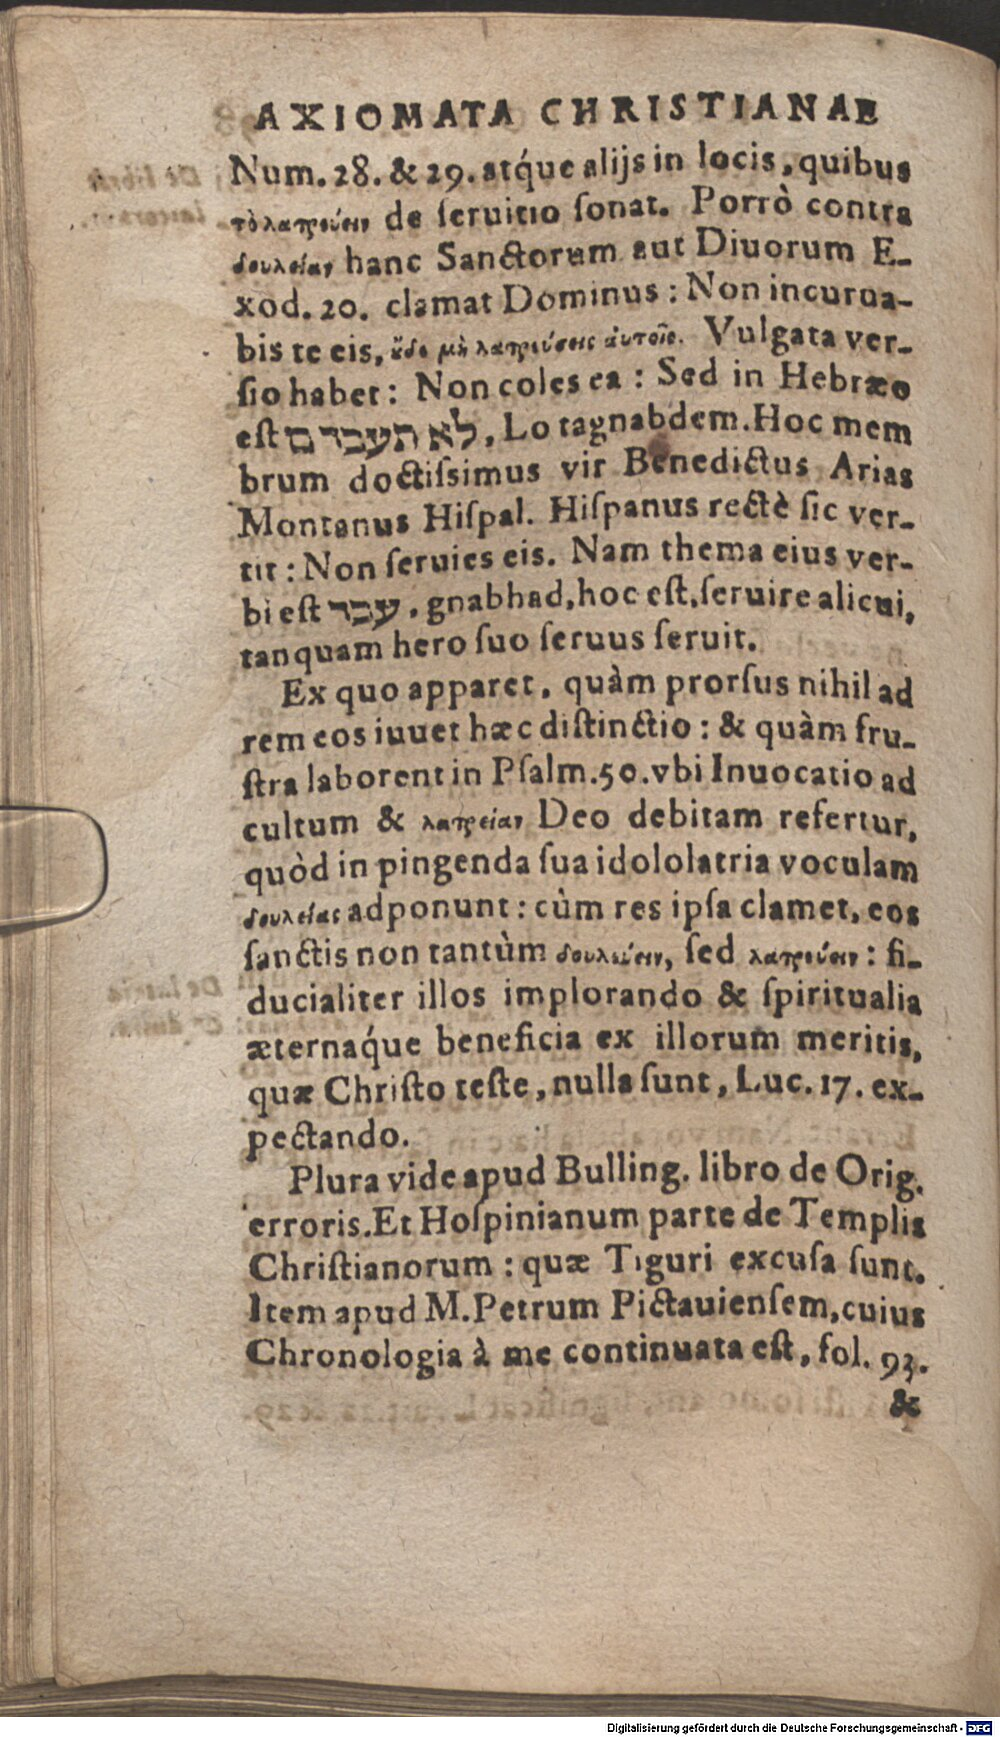 AXIOMATA CHRISTIANAE
Num. 28. & 29. atq́ue alijs in locis, quibus
τὸ λατρεύειν de ſeruitio ſonat. Porrò contra
δουλείαν hanc Sanctorum aut Diuorum E-
xod. 20. clamat Dominus : Non incurua-
bis te eis, ἐδὲ μὴ λατρεύσεις ἀυτοῖς. Vulgata ver-
ſio habet : Non coles ea : Sed in Hebræo
eſt לא תעבדם, Lo tagnabdem. Hoc mem
brum doctiſsimus vir Benedictus Arias
Montanus Hiſpal. Hiſpanus rectè ſic ver-
tit : Non ſeruies eis. Nam thema eius ver-
bi eſt עבד, gnabhad, hoc eſt, ſeruire alicui,
tanquam hero ſuo ſeruus ſeruit.
Ex quo apparet, quàm prorſus nihil ad
rem eos iuuet hæc diſtinctio : & quàm fru-
ſtra laborent in Pſalm. 50. vbi Inuocatio ad
cultum & λατρείαν Deo debitam refertur,
quòd in pingenda ſua idololatria voculam
δουλείας adponunt : cùm res ipſa clamet, eos
ſanctis non tantùm δουλεύειν, ſed λατρεύειν : fi-
ducialiter illos implorando & ſpiritualia
æternaq́ue beneficia ex illorum meritis,
quæ Chriſto teſte, nulla ſunt, Luc. 17. ex-
pectando.
Plura vide apud Bulling. libro de Orig.
erroris. Et Hoſpinianum parte de Templis
Chriſtianorum : quæ Tiguri excuſa ſunt.
Item apud M. Petrum Pictauienſem, cuius
Chronologia à me continuata eſt, fol. 93.
&
Digitalisierung gefördert durch die Deutsche Forschungsgemeinschaft - DFG